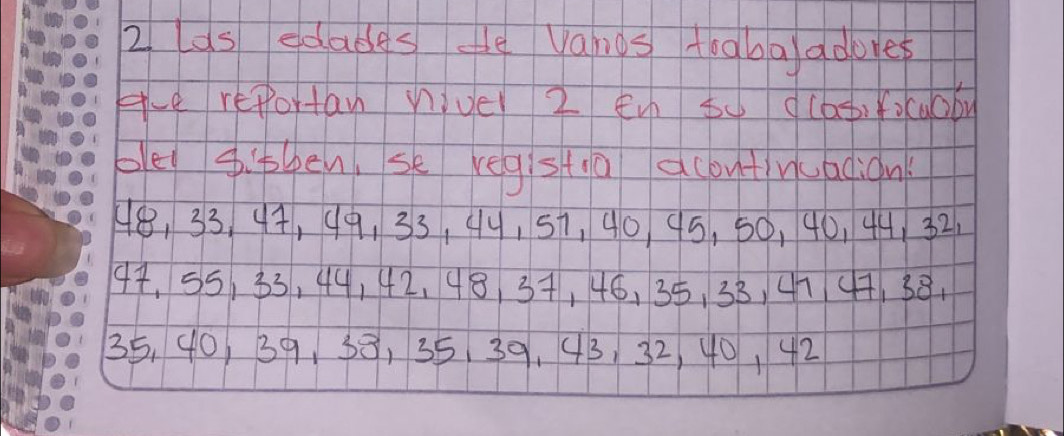 2 Las edades de varios trabajadores
que reportan nivel 2 en su clasificación
del sisben, se registra acontinuación:
48, 33, 47, 49, 33, 44, 51, 40, 45, 50, 40, 44, 32,
47, 55, 33, 44, 42, 48, 37, 46, 35, 33, 41, 47, 38,
35, 40, 39, 38, 35, 39, 43, 32, 40, 42